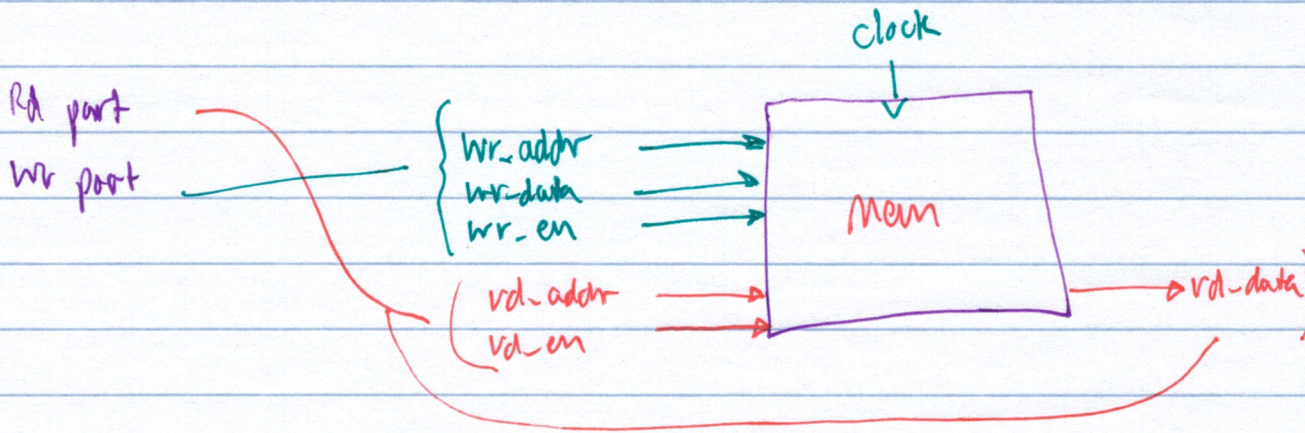 clock
Rd port
wr port
wr_addr
wr_data
wr_en
Mem
rd_addr
rd_en
rd_data